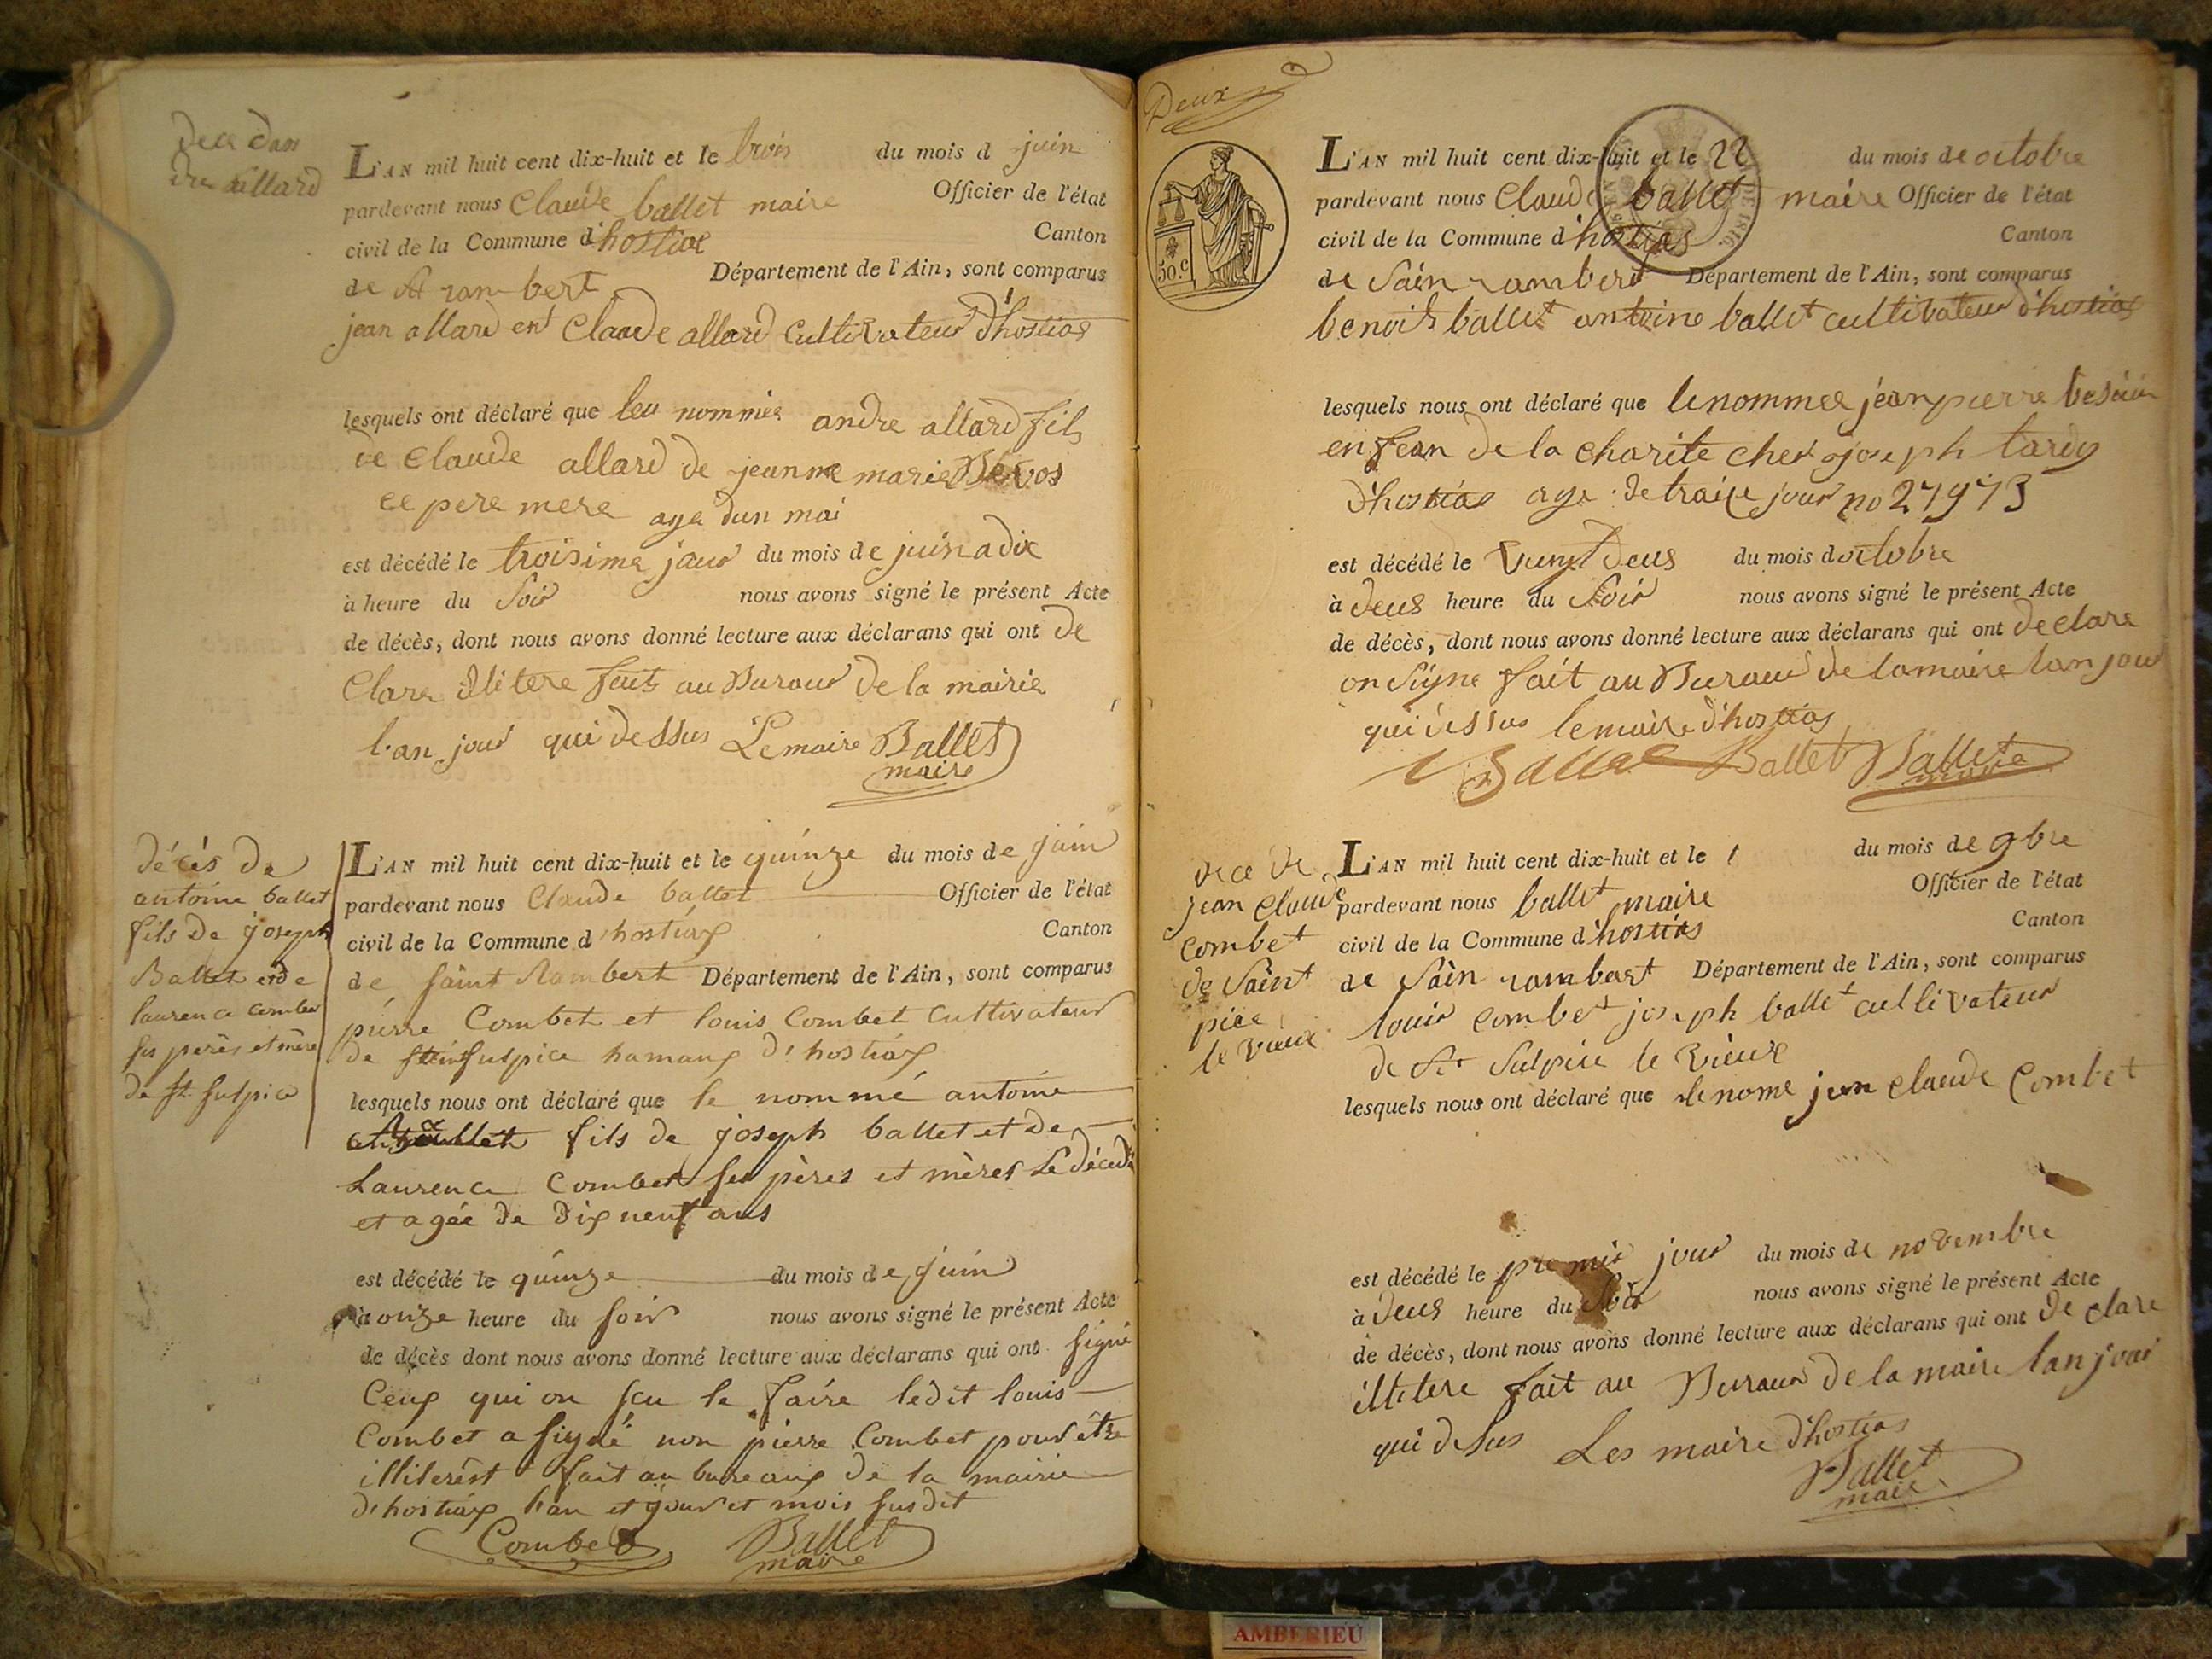 dece dan
dre allard
L'AN mil huit cent dix-huit et le trois du mois d juin
pardevant nous Claude ballet maire Officier de l'état
civil de la Commune d'hostias Canton
de St rambert Département de l'Ain, sont comparus
jean allard ent Claude allard cultivateur d'hostias
lesquels ont déclaré que leu nommee andre allard fils
de Claude allard de jeanne marie
ce pere mere aga dun moi
est décédé le troisime jour du mois de juin a dix
à heure du Soir nous avons signé le présent Acte
de décès, dont nous avons donné lecture aux déclarans qui ont de
Clare illitere fait au Buraux de la mairie
l'an jour qui dessus Le maire Ballet
maire
décès de
antoine ballet
fils de joseph
Ballet et de
laurence combet
ses perès et mère
de st sulpice
L'AN mil huit cent dix-huit et le quinze du mois de juin
pardevant nous Claude ballet Officier de l'état
civil de la Commune d'hostiax Canton
de saint Rambert Département de l'Ain, sont comparus
pierre Combet et louis Combet cultivateur
de saint sulpice hamaux d'hostiax
lesquels nous ont déclaré que le nommé antoine
fils de joseph ballet et de
Laurence Combet ses pères et mères Le décedé
et agée de dix neuf ans
est décédé le quinze du mois de juin
à onze heure du soir nous avons signé le présent Acte
de décès dont nous avons donné lecture aux déclarans qui ont signé
Ceux qui on scu le faire ledit louis
Combet a signé non pierre Combet pour être
illiterést fait au bureaux de la mairie
d'hostiax l'an et jour et mois susdit
Combet Ballet
maire
Deux
50.c
DE 1816.
L'AN mil huit cent dix-huit et le 22 du mois de octobre
pardevant nous Claude ballet maire Officier de l'état
civil de la Commune d'hostias Canton
de Sain rambert Département de l'Ain, sont comparus
benoit ballet antoine ballet cultivateur d'hostias
lesquels nous ont déclaré que le nommee jean pierre
enfean de la charite chet joseph tardy
d'hostias age de traize jour no 27973
est décédé le vingt deus du mois d octobre
à deus heure du Soir nous avons signé le présent Acte
de décès, dont nous avons donné lecture aux déclarans qui ont declare
on signe fait au Buraux de la maire lan jour
qui dessus le maire d'hostias
Ballet Ballet Ballet
maire
dece de
jean claude
combet
de Saint
pice
le vieux
L'AN mil huit cent dix-huit et le 1 du mois de 9bre
pardevant nous ballet maire Officier de l'état
civil de la Commune d'hostias Canton
de Sain rambert Département de l'Ain, sont comparus
louis combet joseph ballet cultivateur
de St Sulpice le vieux
lesquels nous ont déclaré que le nome jean claude Combet
est décédé le premier jour du mois de novembre
à deus heure du Soir nous avons signé le présent Acte
de décès, dont nous avons donné lecture aux déclarans qui ont declare
illitere fait au Buraux de la maire lan jour
qui desus Les maire d'hostias
Ballet
maire
AMBERIEU